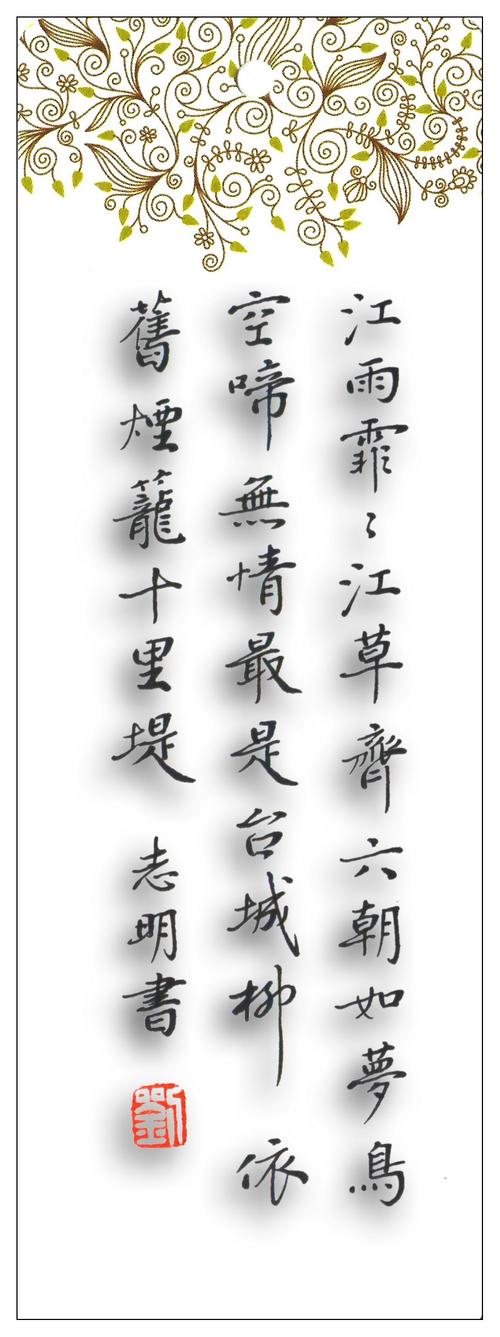 江雨霏〻江草齊六朝如夢鳥
空啼無情最是台城柳依
舊煙籠十里堤 志明書
劉